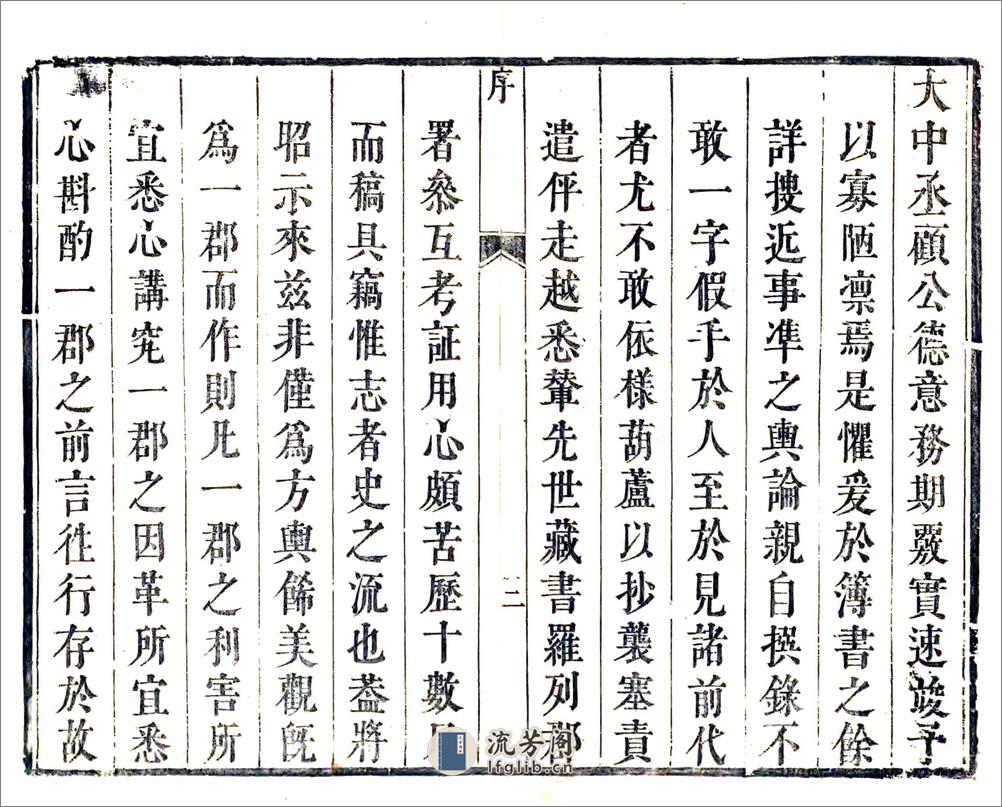 大中丞顧公德意務期覈實速竣予
以寡陋凛焉是懼爰於簿書之餘
詳搜近事凖之輿論親自撰錄不
敢一字假手於人至於見諸前代
者尤不敢依樣葫蘆以抄襲塞責
遣伻走越悉輦先世藏書羅列郡
序
二
署叅互考証用心頗苦歷十數
而稿具竊惟志者史之流也葢將
昭示來兹非僅爲方輿餙美觀旣
爲一郡而作則凡一郡之利害所
宜悉心講究一郡之因革所宜悉
心斟酌一郡之前言徃行存於故
流芳阁
lfglib.cn